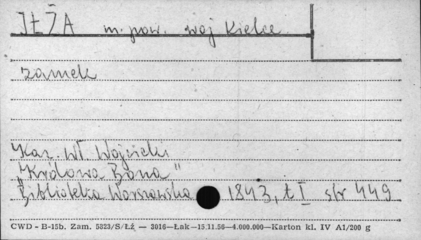 IŁŻA m. pow. woj Kielce
zamek
Kaz. Wł. Wójcicki
"Królowa Bona"
Biblioteka Warszawska 1843, t I str 449
CWD - B-15b. Zam. 5023/S/Łź — 3016—Łak—15.11.56—4.000.000—Karton kl. IV A1/200 g